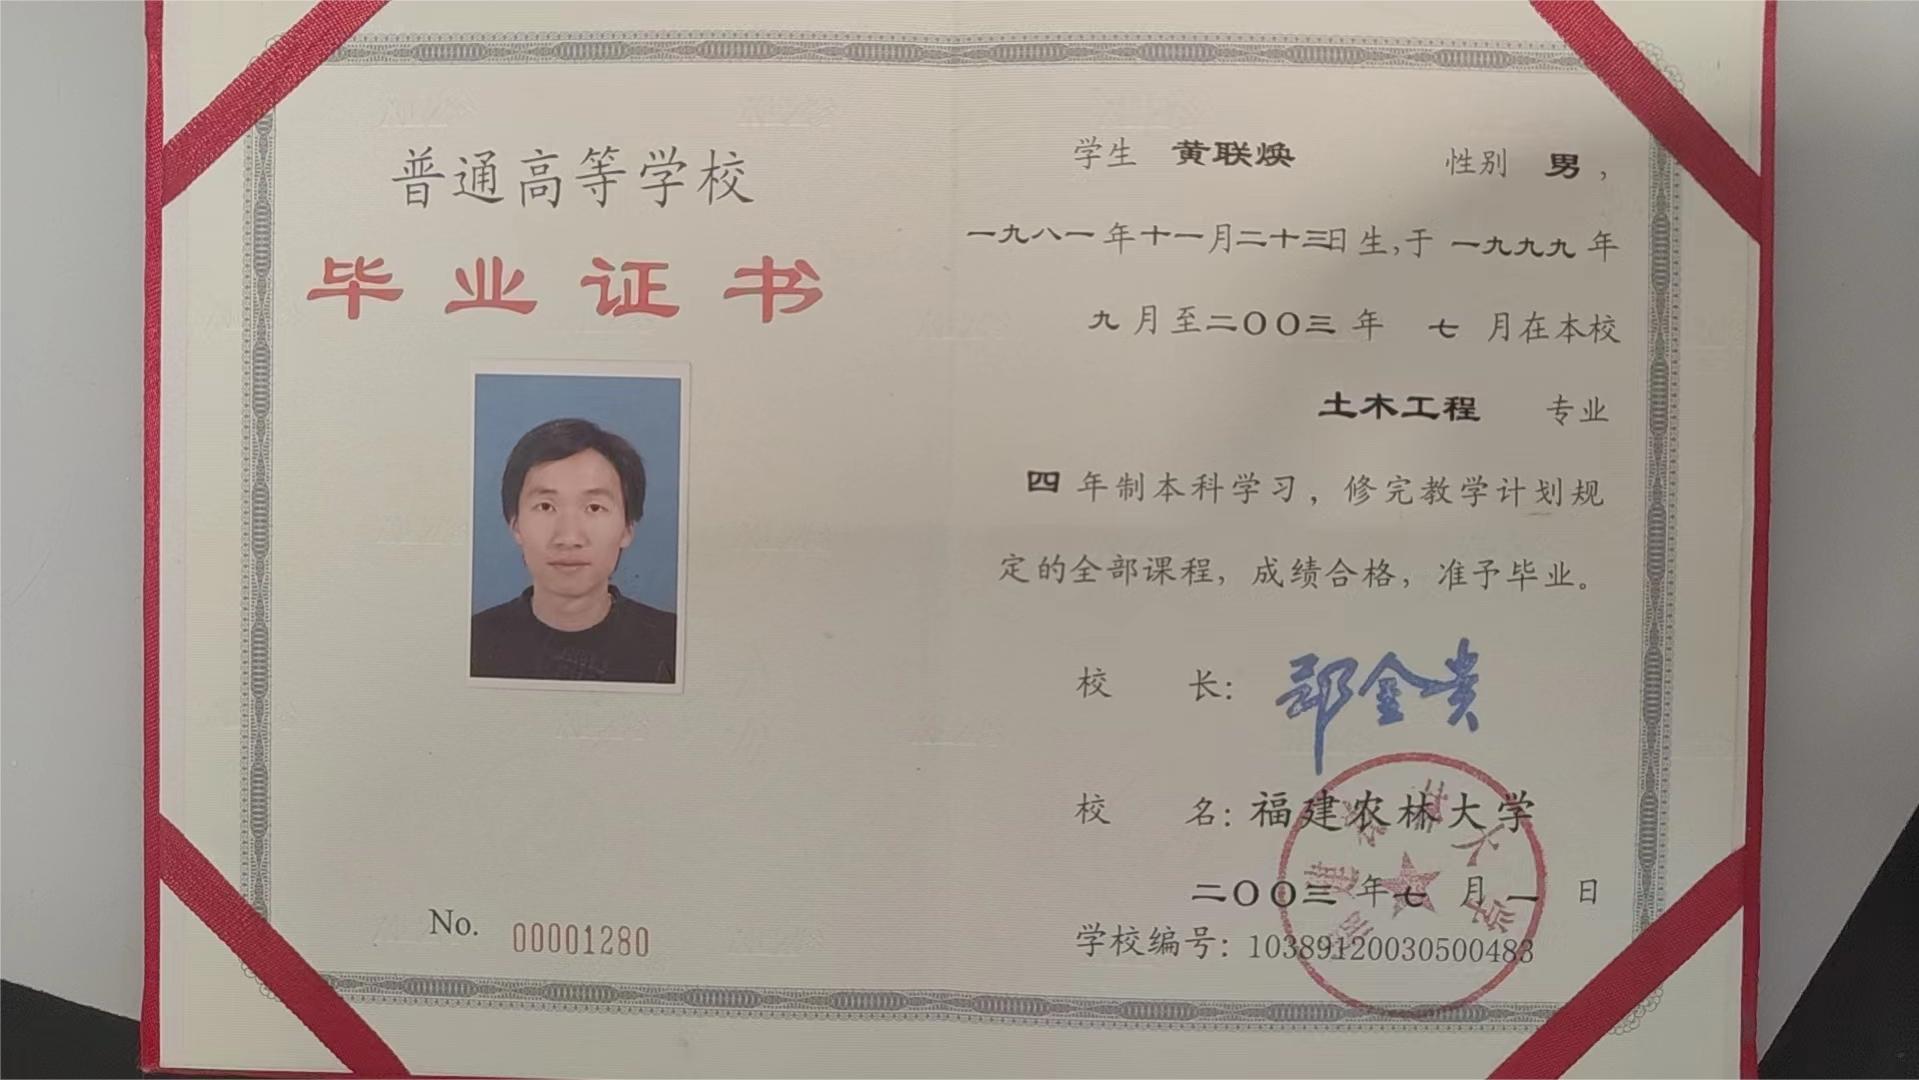 普通高等学校
毕业证书
No. 00001280
学生 黄联焕 性别 男，
一九八一年十一月二十三日生,于一九九九年
九月至二〇〇三年 七 月在本校
土木工程 专业
四年制本科学习，修完教学计划规
定的全部课程，成绩合格，准予毕业。
校 长: 郑金贵
校 名: 福建农林大学
二〇〇三年七月一日
学校编号: 10389120030500483
福建农林大学